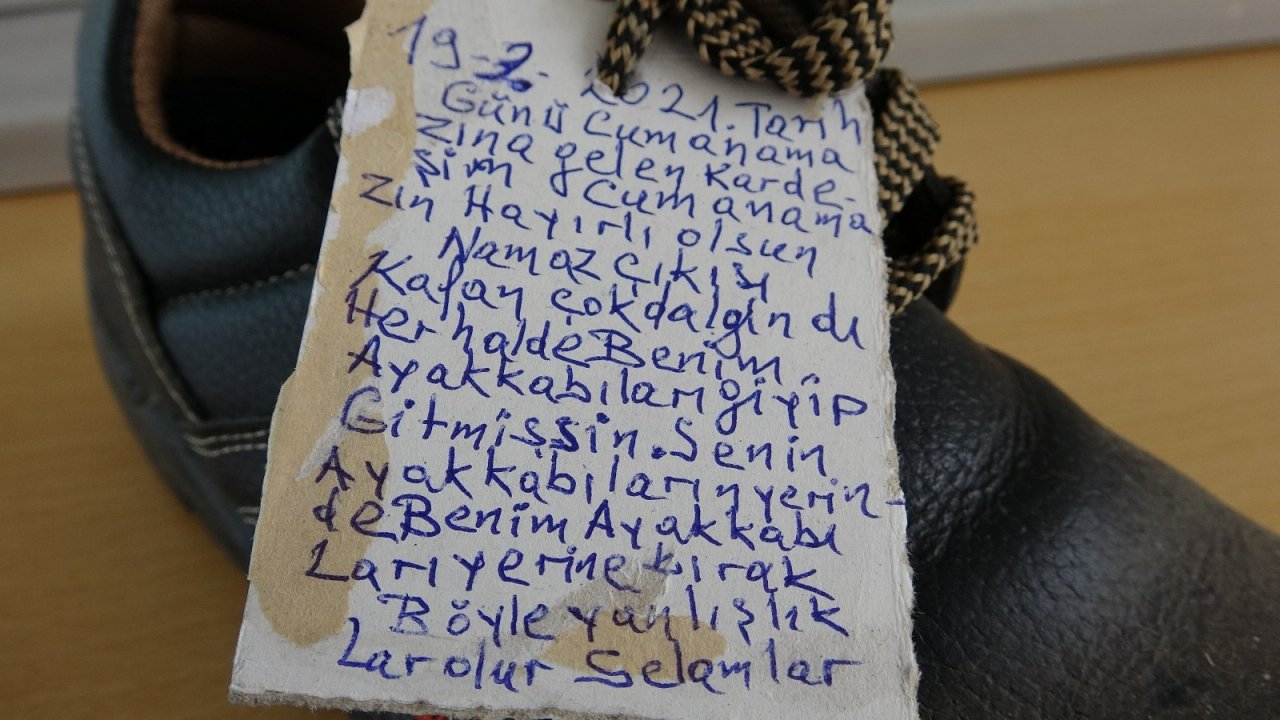 19-2-2021.Tarih
Günü Cumanama
zına gelen Karde-
şim Cumanama
zın Hayırlı olsun
Namaz çıkışı
Kafan çokdalgındı
HerhaldeBenim
Ayakkabılarıgiyip
Gitmişsin.Senin
Ayakkabılarınyerin-
deBenim Ayakkabı
Larıyerine bırak
Böyle yanlışlık
Lar olur Selamlar